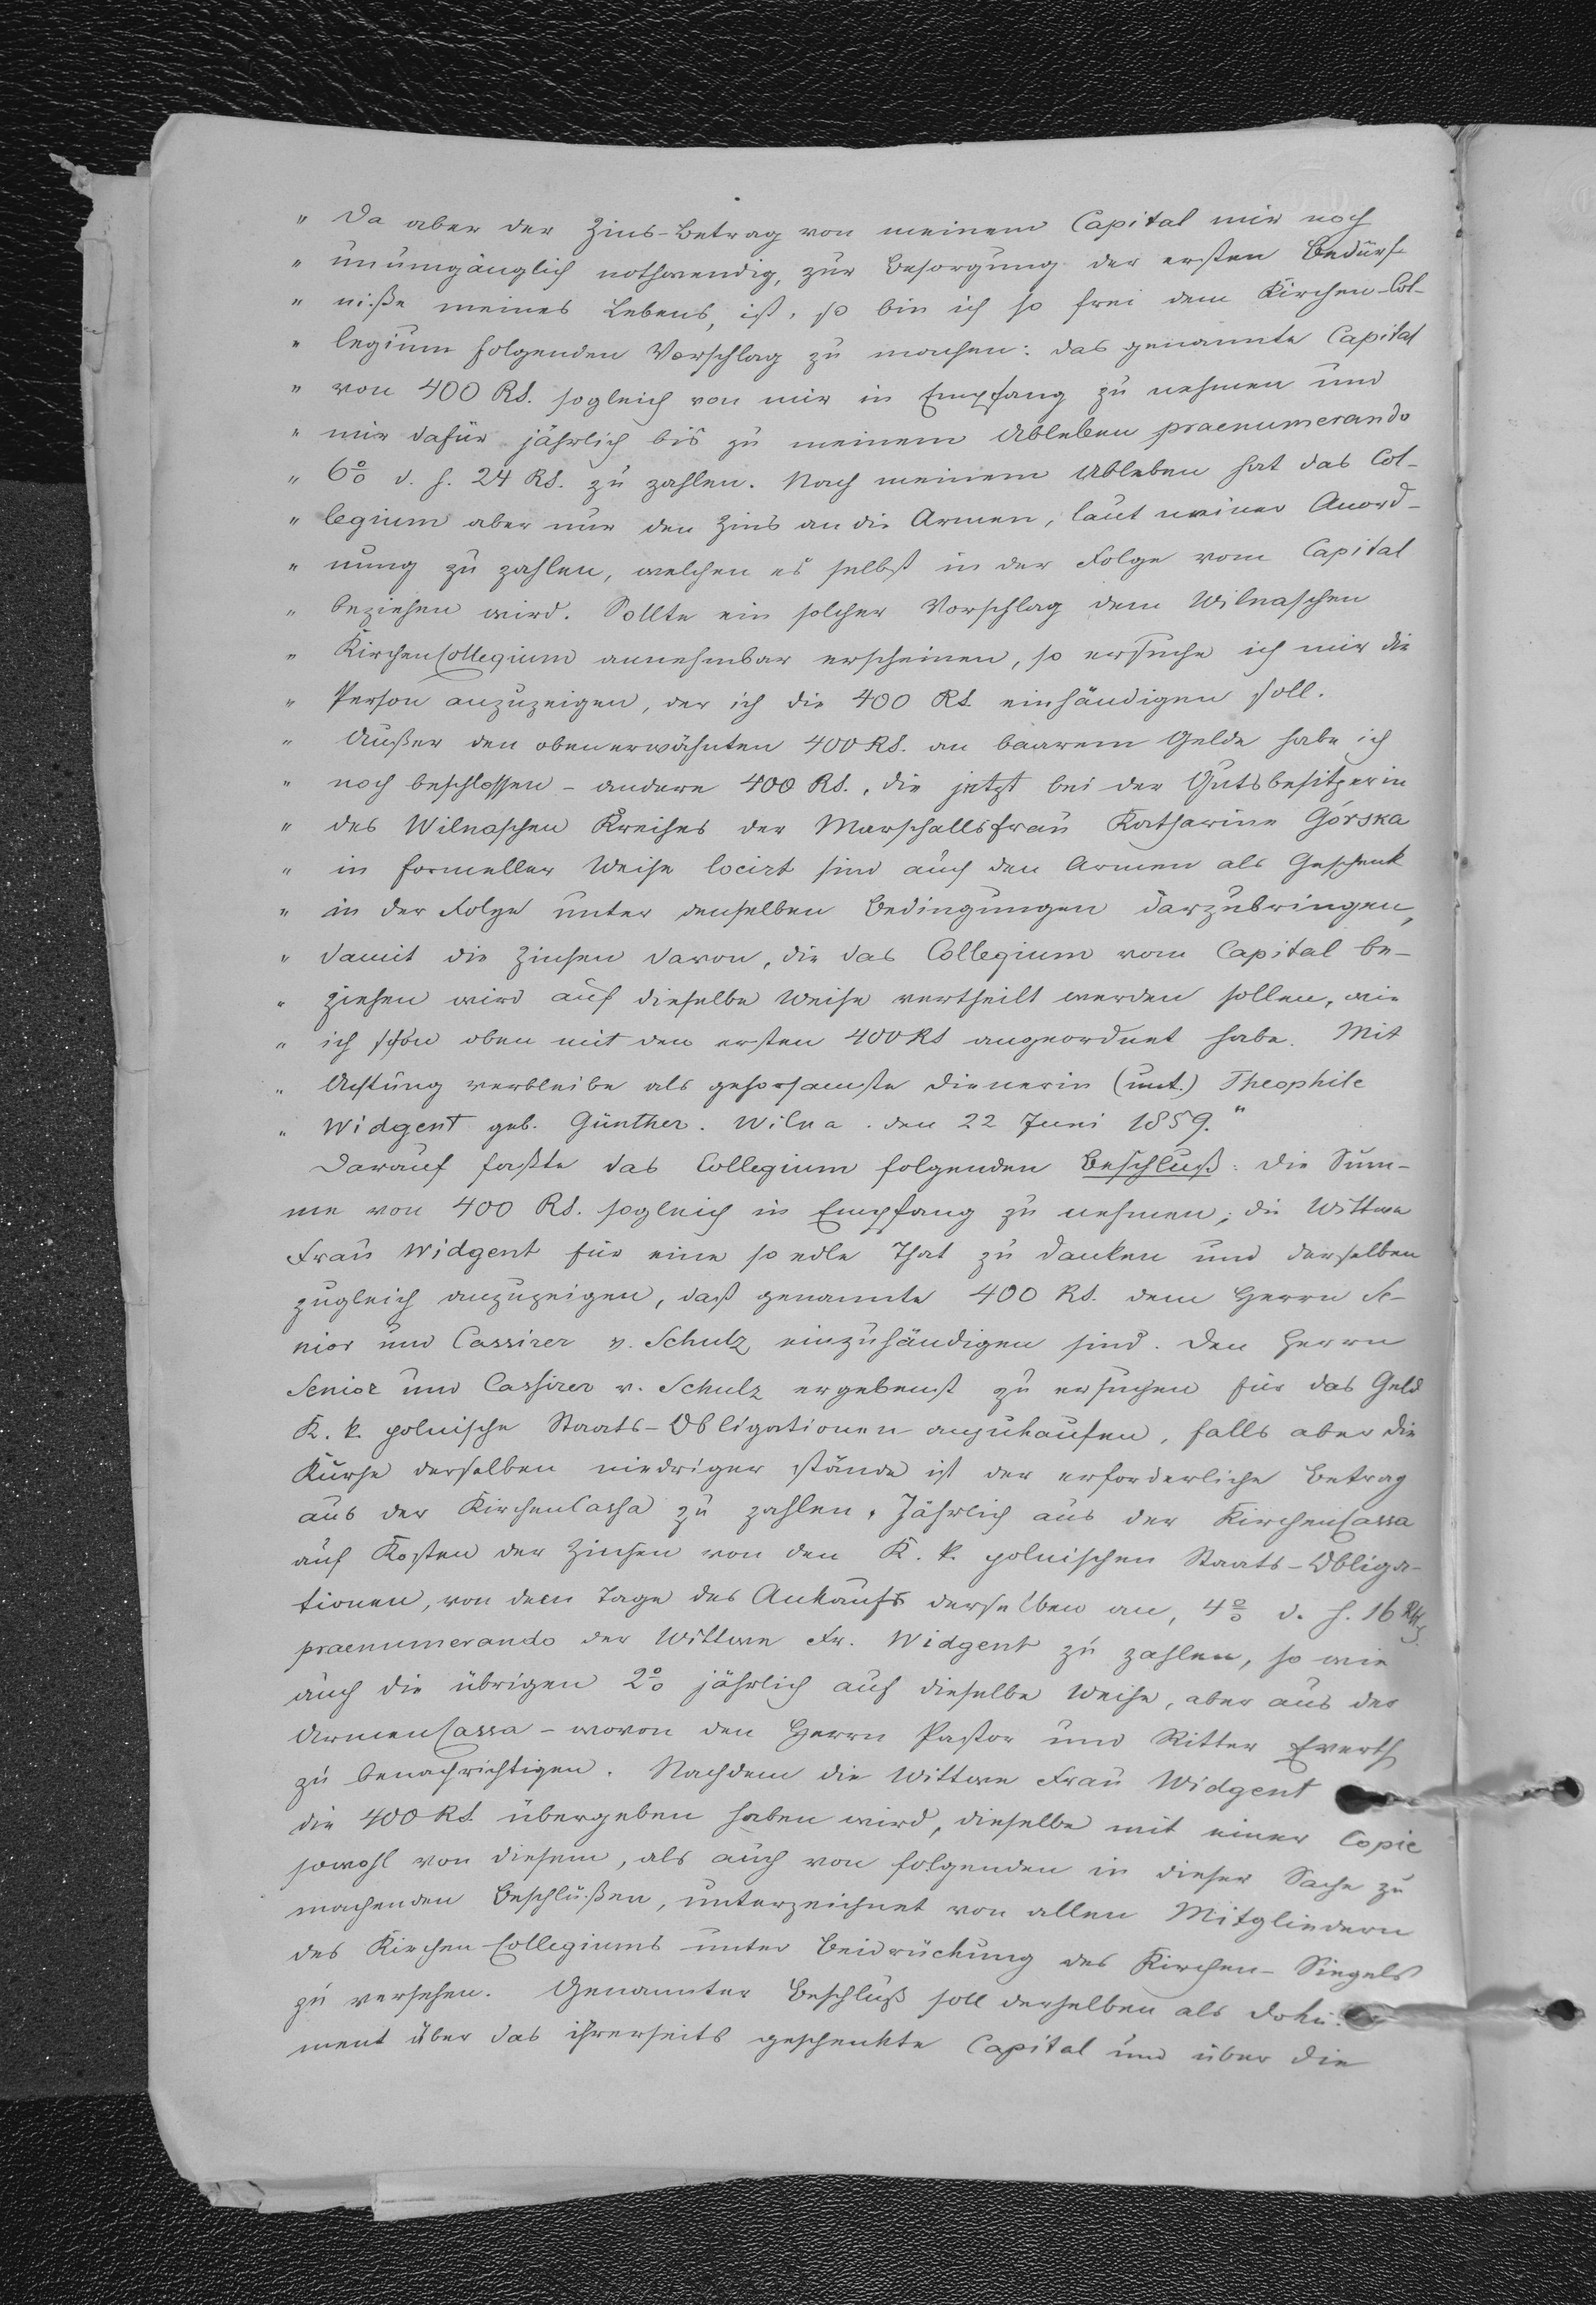 " Da aber der Zins-Betrag von meinem Capital mir noch
" unumgänglich nothwendig, zur Besorgung der ersten Bedürf-
" niße meines Lebens, ist, so bin ich so frei dem Kirchen-Col-
" legium folgenden Vorschlag zu machen: das genannte Capital
" von 400 RS. sogleich von mir in Empfang zu nehmen und
" mir dafür jährlich bis zu meinem Ableben praenumerando
" 6% d. h. 24 RS. zu zahlen. Nach meinem Ableben hat das Col-
" legium aber nur den Zins an die Armen, laut meiner Anord-
" nung zu zahlen, welchen es selbst in der Folge vom Capital
" beziehen wird. Sollte ein solcher Vorschlag dem Wilnaschen
" KirchenCollegium annehmbar erscheinen, so ersuche ich mir die
" Person anzuzeigen, der ich die 400 RS. einhändigen soll.
" Außer den obenerwähnten 400 RS. an baarem Gelde habe ich
" noch beschlossen - andere 400 RS., die jetzt bei der Gutsbesitzerin
" des Wilnaschen Kreises der Marschallsfrau Katharine Górska
" in formeller Weise locirt sind auch den Armen als Geschenk
" in der Folge unter denselben Bedingungen darzubringen,
" damit die Zinsen davon, die das Collegium vom Capital be-
" ziehen wird auf dieselbe Weise vertheilt werden sollen, wie
" ich schon oben mit den ersten 400 RS angeordnet habe. Mit
" Achtung verbleibe als gehorsamste Dienerin (unt.) Theophile
" Widgent geb. Günther. Wilna. den 22 Juni 1859."
Darauf faßte das Collegium folgenden Beschluß: die Sum-
me von 400 RS. sogleich in Empfang zu nehmen; die Wittwe
Frau Widgent für eine so edle That zu danken und derselben
zugleich anzuzeigen, daß genannte 400 RS. dem Herrn Se-
nior und Cassirer v. Schulz einzuhändigen sind. Den Herrn
Senior und Cassirer v. Schulz ergebenst zu ersuchen für das Geld
K. k. polnische Staats-Obligationen anzukaufen, falls aber die
Kurse derselben niedriger stände ist der erforderliche Betrag
aus der KirchenCassa zu zahlen. Jährlich aus der KirchenCassa
auf Kosten der Zinsen von den K. k. polnischen Staats-Obliga-
tionen, von dem Tage des Ankaufs derselben an, 4% d. h. 16 RS.
praenumerando der Wittwe Fr. Widgent zu zahlen, so wie
auch die übrigen 2% jährlich auf dieselbe Weise, aber aus der
ArmenCassa - wovon den Herrn Pastor und Ritter Everth
zu benachrichtigen. Nachdem die Wittwe Frau Widgent
die 400 RS. übergeben haben wird, dieselbe mit einer Copie
sowohl von diesem, als auch von folgenden in dieser Sache zu
machenden Beschlüßen, unterzeichnet von allen Mitgliedern
des Kirchen Collegiums unter Beidrückung des Kirchen-Siegels
zu versehen. Genannter Beschluß soll derselben als Doku-
ment über das ihrerseits geschenkte Capital und über die